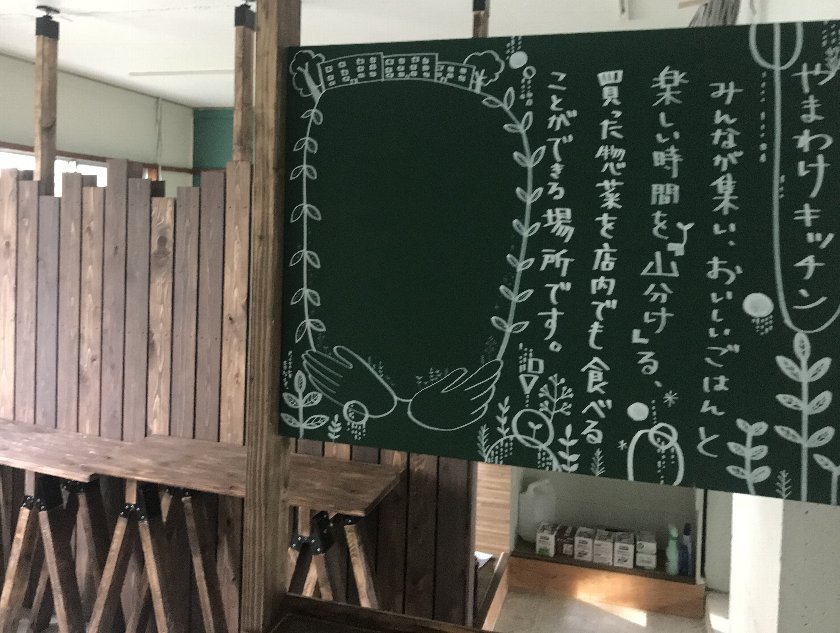 やまわけキッチン
みんなが集い、おいしいごはんと
楽しい時間を『山分け』る、
買った惣菜を店内でも食べる
ことができる場所です。